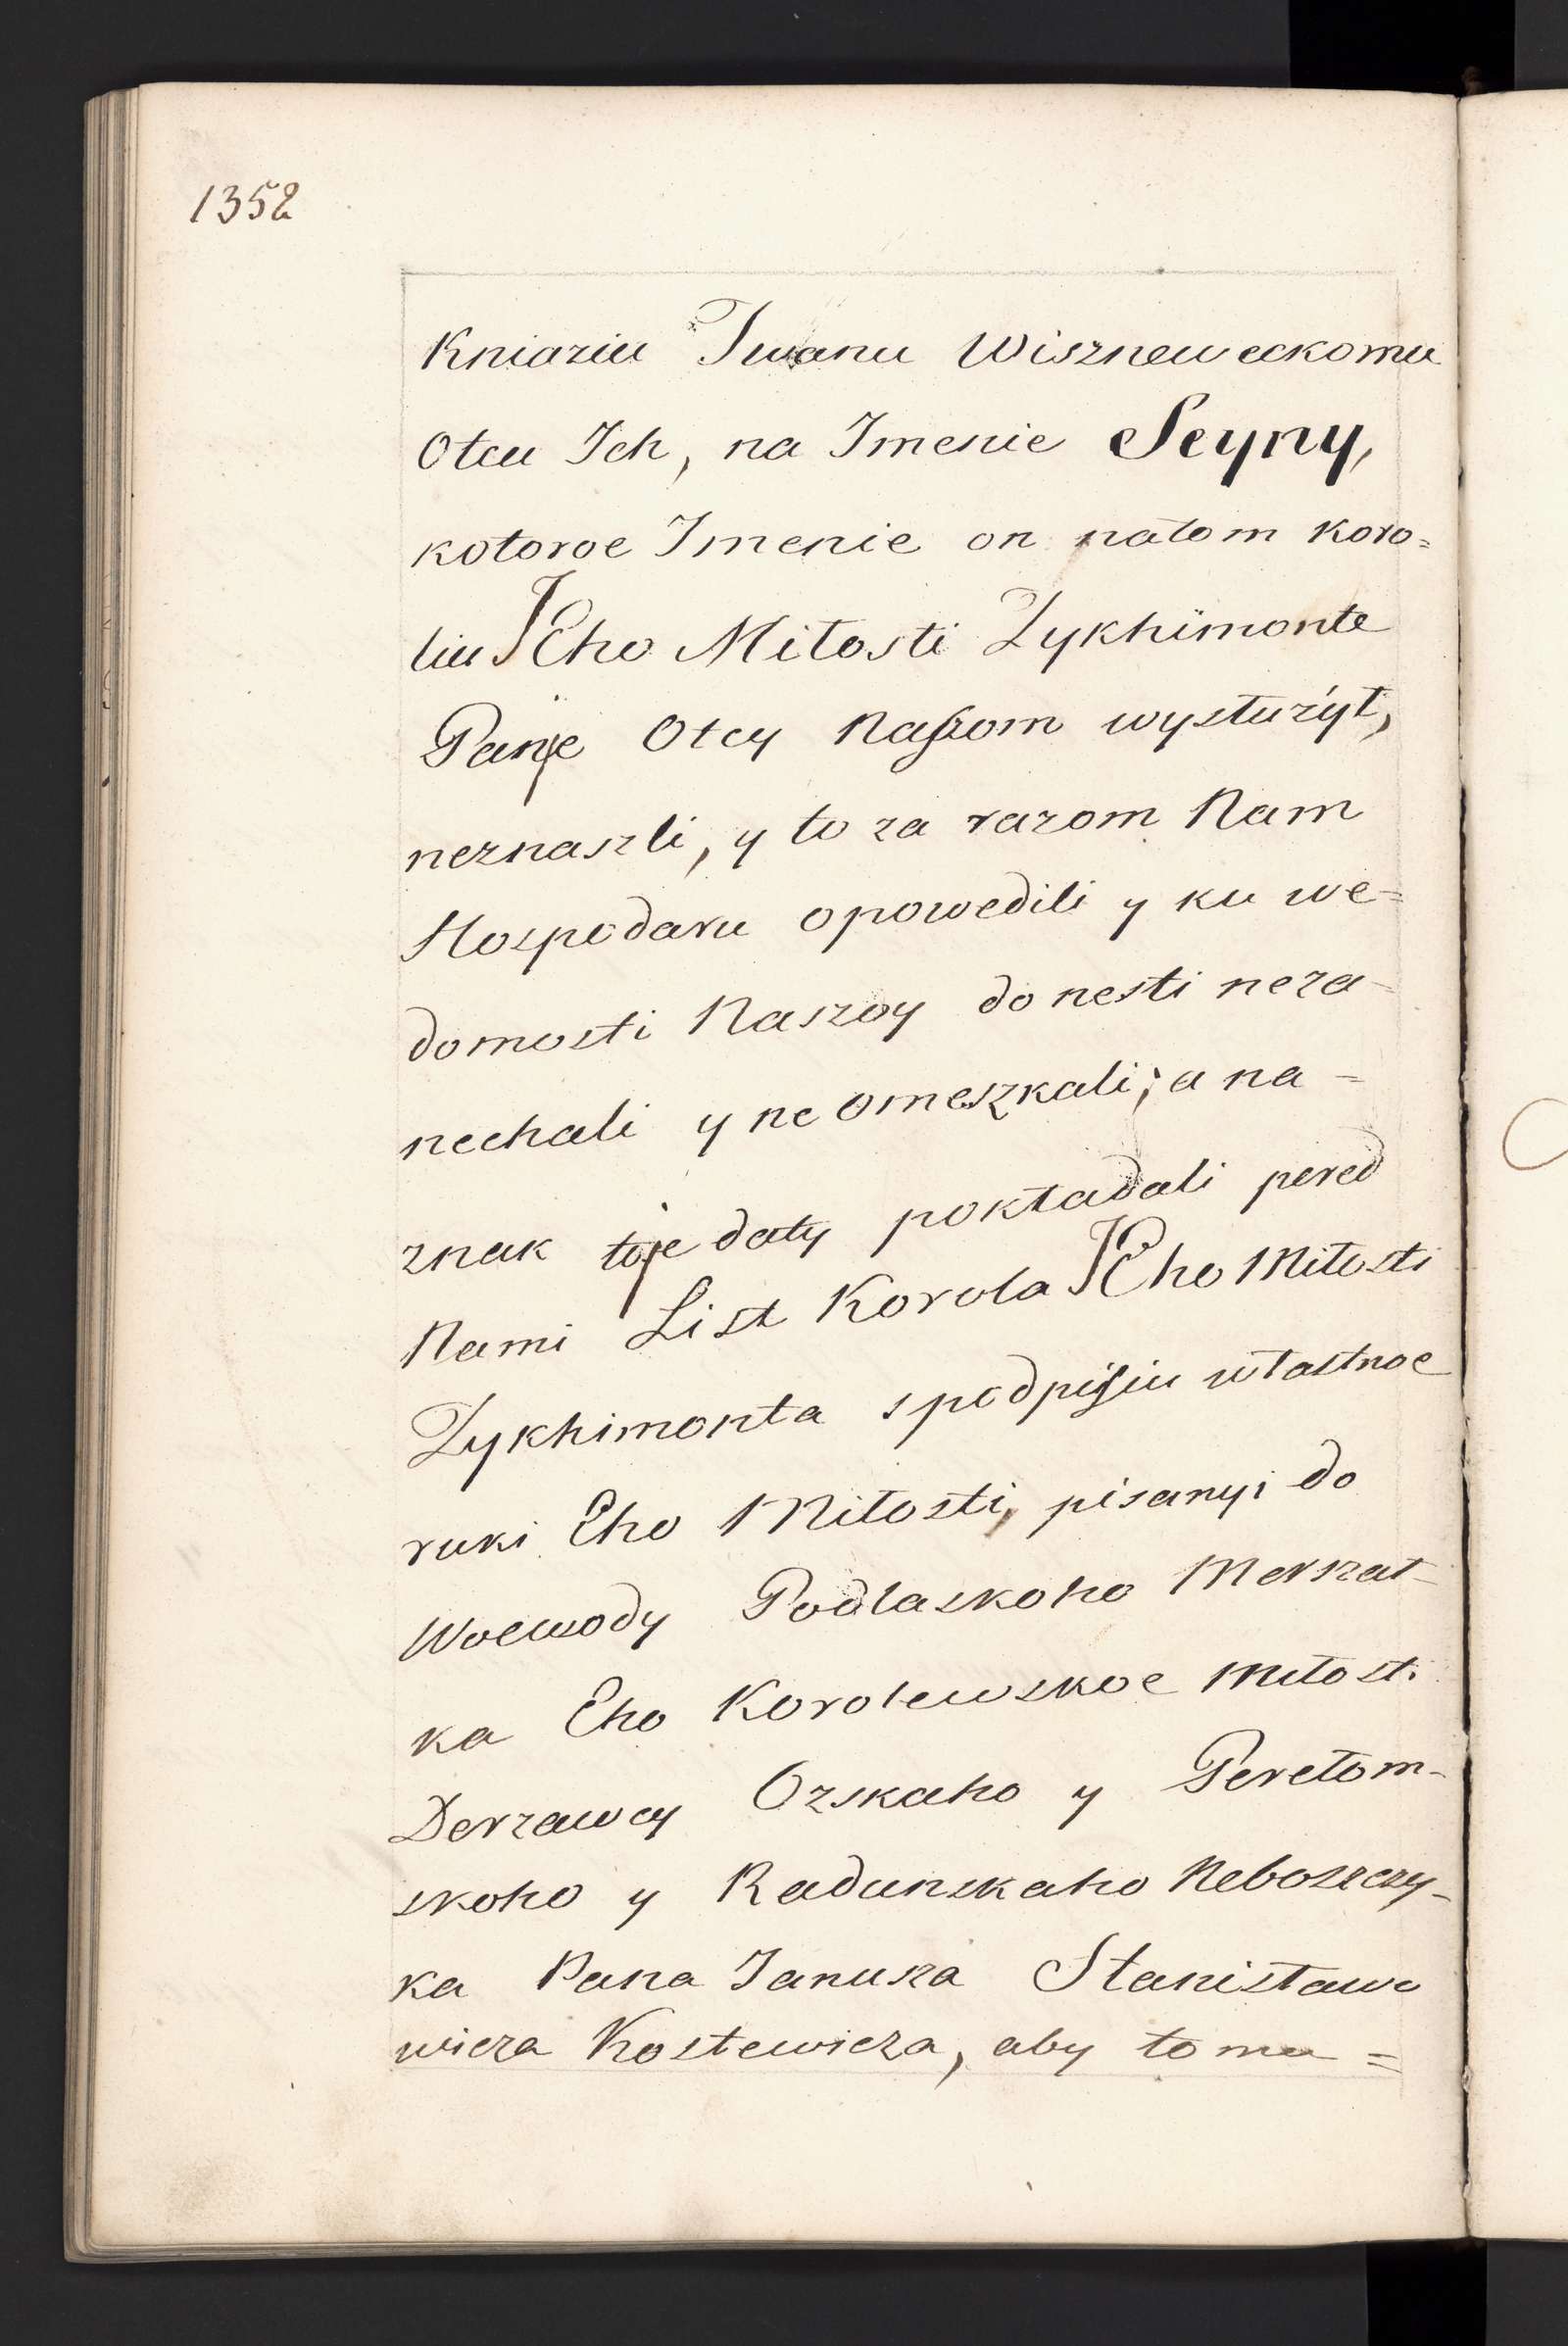 1352
Kniaziu Iwanu Wiszneweckomu
Otcu Ich, na Imenie Seyny,
kotoroe Imenie on natom Koro=
liu JEho Miłosti Zykhimonte
Panje Otcy Naszom wysłużył,
neznaszli, y to za razom Nam
Hospodaru opowedili y ku we=
domosti Naszoy do nesti neza-
nechali y ne omeszkali; a na-
znak toje daty pokładali pered
Nami List Korola JEho Miłosti
Zykhimonta s podpisiu własnoe
ruki Eho Miłosti, pisanyi do
Woewody Podlaskoho Marszał-
ka Eho Korolewskoe Miłosti
Derzawcy Ozskaho y Perełom-
skoho y Radunskaho Neboszczy-
ka Pana Janusza Stanisławo
wicza Kostewicza, aby to mu=